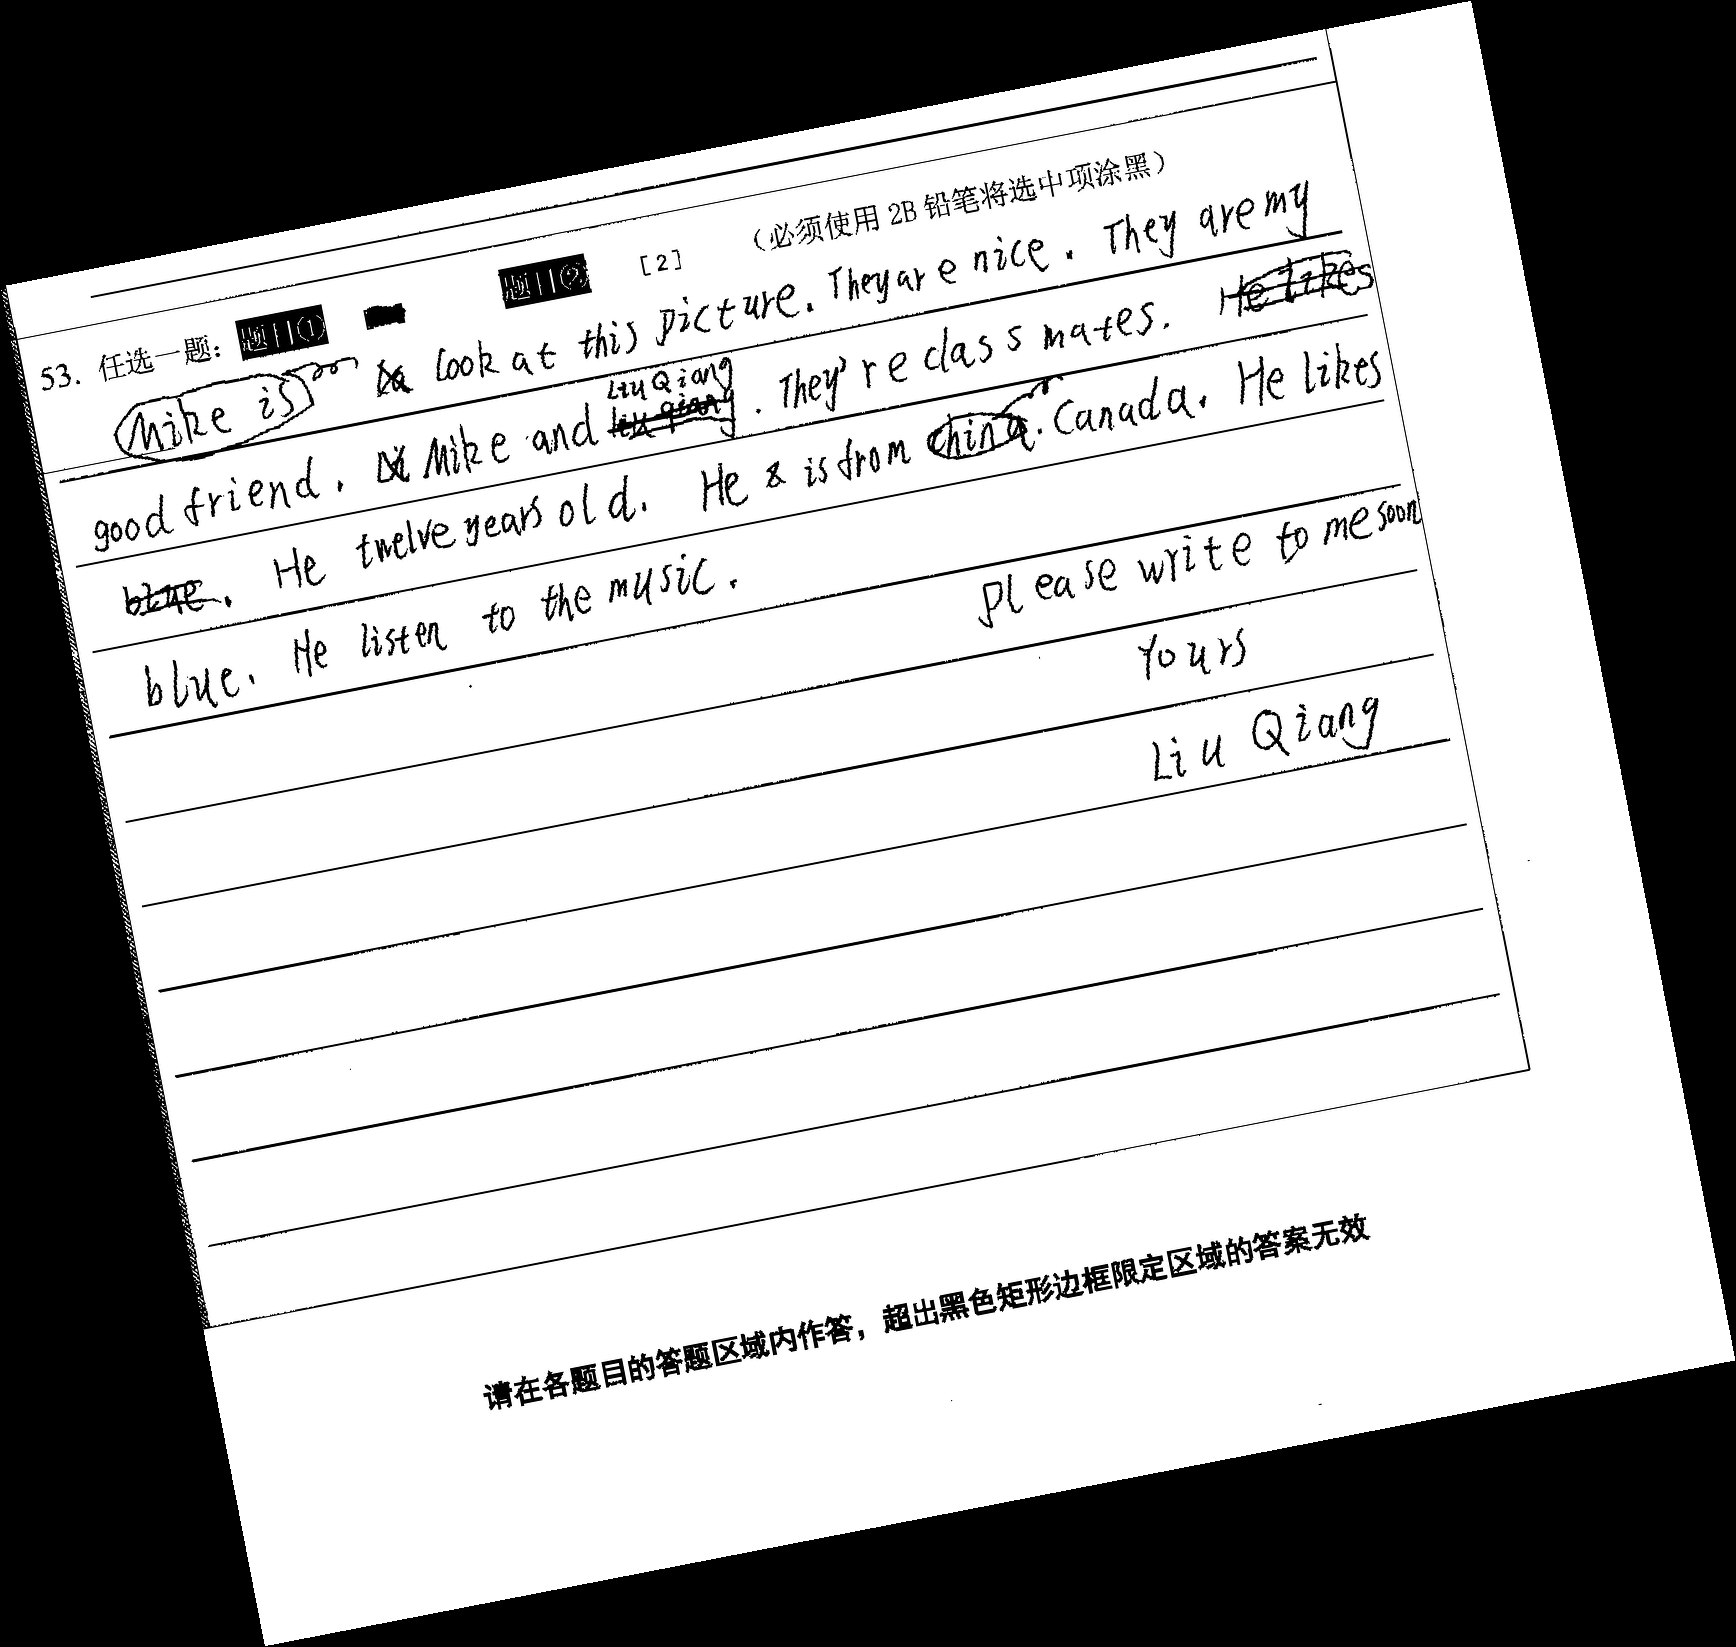 53. 任选一题: 题目① 题目② [2] (必须使用 2B 铅笔将选中项涂黑)
Look at this picture. They are nice. They are my
good friend. Mike and Liu Qiang. They're classmates.
He twelve years old. He is from Canada. He likes
blue. He listen to the music.
please write to me soon
Yours
Liu Qiang
请在各题目的答题区域内作答，超出黑色矩形边框限定区域的答案无效